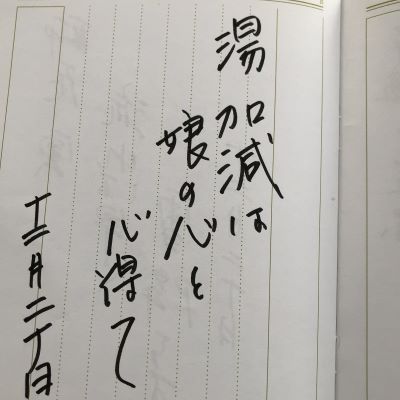 湯加減は
娘の心と
心得て
十二月二十日